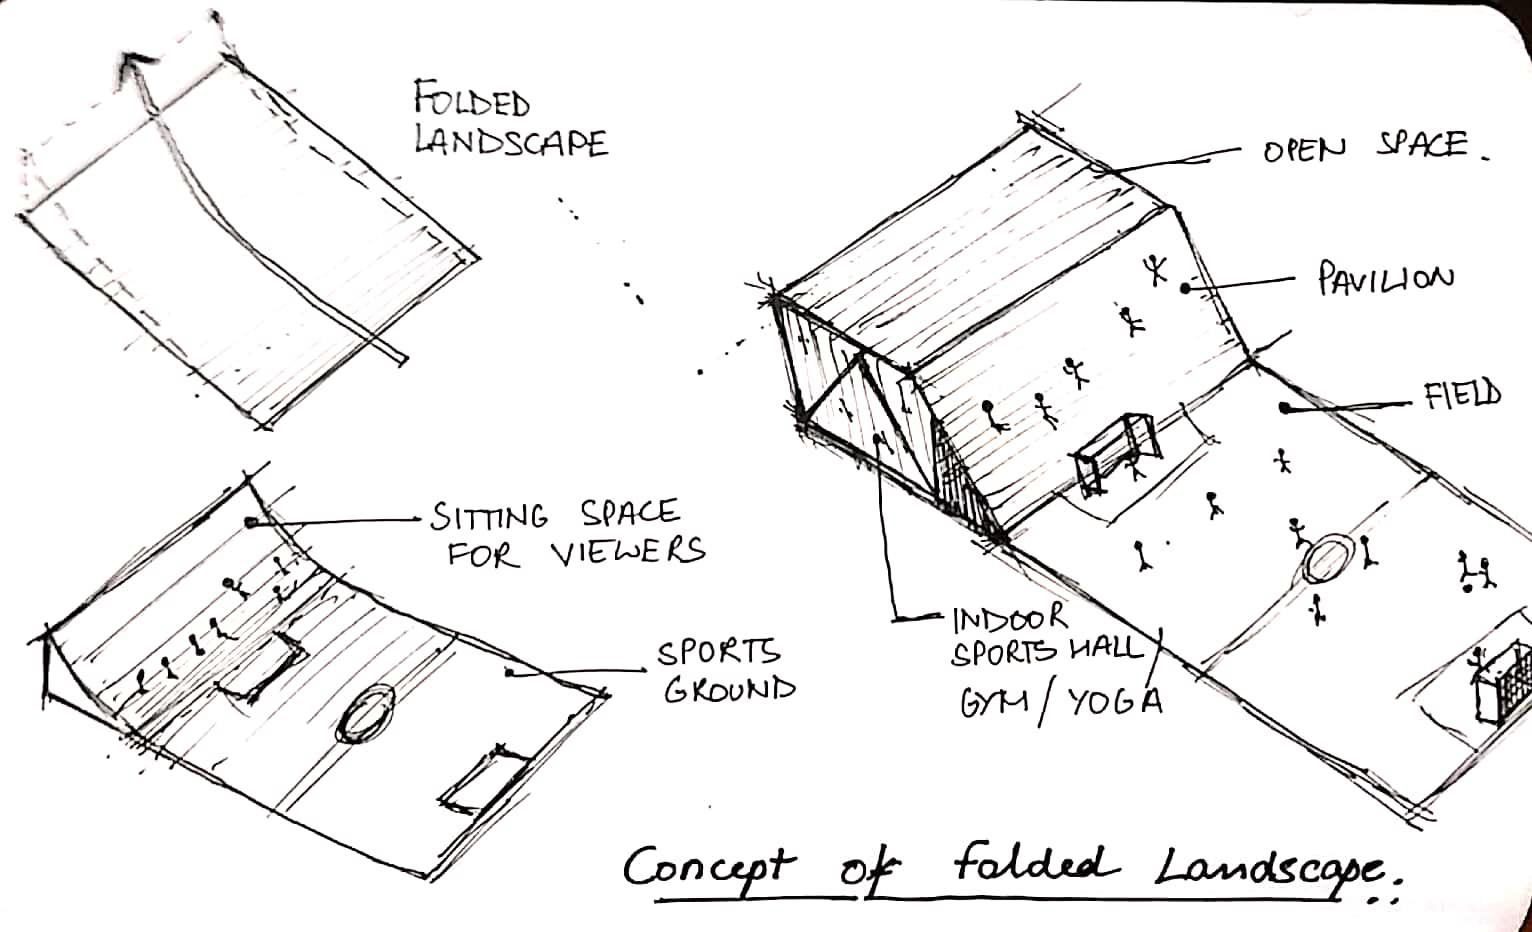 FOLDED
LANDSCAPE
OPEN SPACE.
PAVILION
FIELD
SITTING SPACE
FOR VIEWERS
SPORTS
GROUND
INDOOR
SPORTS HALL
GYM / YOGA
Concept of folded Landscape.